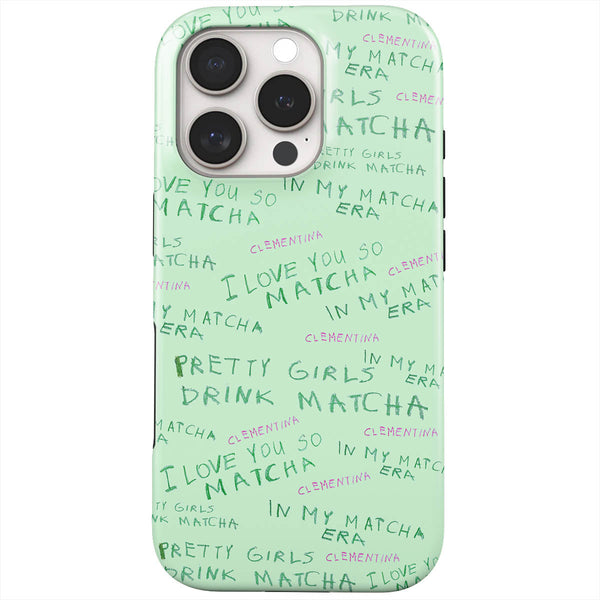 I LOVE YOU SO
DRINK MATCHA
CLEMENTINA
IN MY MATCHA
ERA
IRLS
CLEMENTIN
MATCHA
ETTY GIRLS
DRINK MATCHA
OVE YOU SO
MATCHA
IN MY MATCHA
ERA
CLEMENTINA
RLS
ATCHA
I LOVE YOU SO
MATCHA
CLEMENT
NTINA
Y MATCHA
ERA
IN MY MAT
ERA
CLEMENTINA
IN MY MA
ERA
PRETTY GIRLS
DRINK MATCHA
MATCHA
CLEMENTINA
CLEMENTINA
I LOVE YOU SO
MATCHA
IN MY MATC
ERA
CLEMENTINA
TY GIRLS
NK MATCHA
IN MY MATCHA
ERA
PRETTY GIRLS
DRINK MATCHA
CLEMENTINA
I LOVE YOU